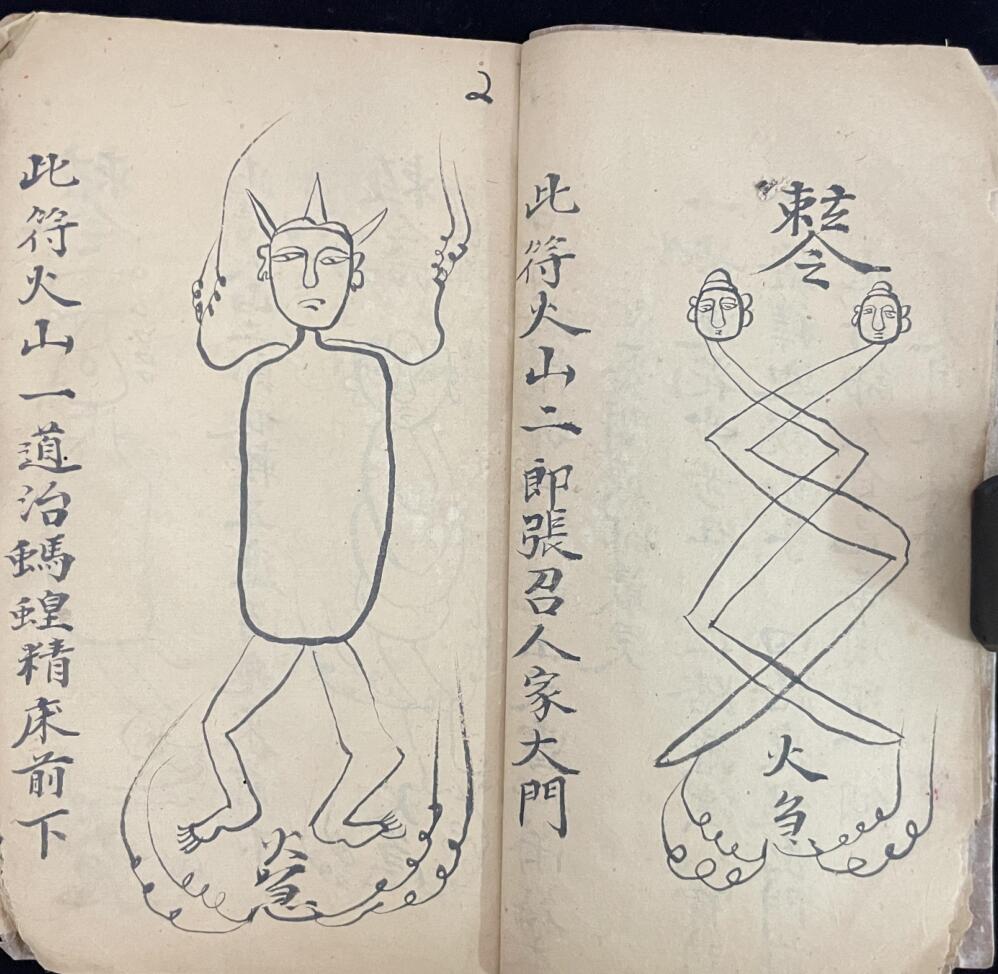 敕令
火急
此符火山二郎張召人家大門
2
火急
此符火山一道治螞蝗精床前下